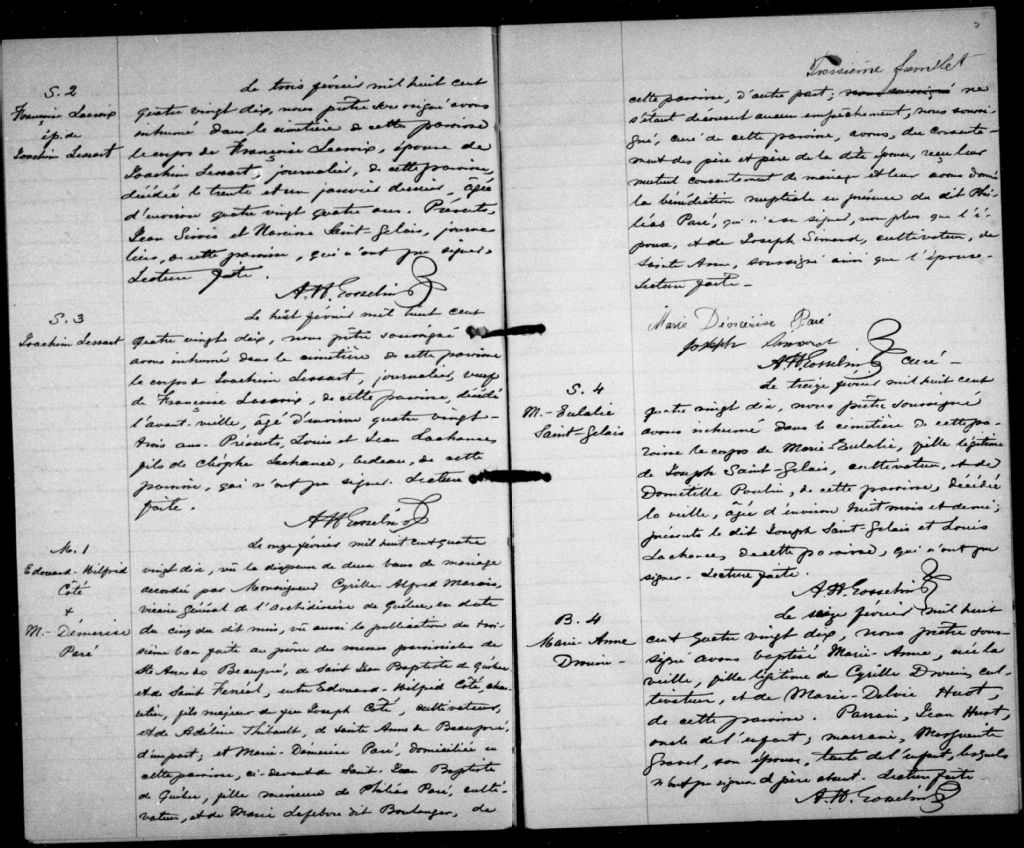 S. 2
Françoise Lacroix
ép. de
Joachim Lessart
Le trois février mil huit cent
quatre vingt dix, nous prêtre soussigné avons
inhumé dans le cimetière de cette paroisse
le corps de Françoise Lacroix, épouse de
Joachim Lessart, journalier, de cette paroisse,
décédée le trente et un janvier dernier, âgée
d'environ quatre vingt quatre ans. Présents,
Jean Sirois et Narcisse Saint-Gelais, journa-
liers, de cette paroisse, qui n'ont pu signer.
Lecture faite.
A. H. Gosselin
S. 3
Joachim Lessart
Le huit février mil huit cent
quatre vingts dix, nous prêtre soussigné
avons inhumé dans le cimetière de cette paroisse
le corps de Joachim Lessart, journalier, veuf
de Françoise Lacroix, de cette paroisse, décédé
l'avant-veille, âgé d'environ quatre vingt-
trois ans. Présents, Louis et Jean Lachance,
fils de Cléophe Lachance, bedeau, de cette
paroisse, qui n'ont pu signer. Lecture
faite.
A H Gosselin
M. 1
Edouard-Wilfrid
Côté
+
M.- Démerise
Paré
Le onze février mil huit cent quatre
vingt dix, vû la dispense de deux bans de mariage
accordée par Monsieur Cyrille Alfred Marois,
vicaire général de l'Archidiocèse de Québec, en date
du cinq du dit mois, vû aussi la publication du troi-
sième ban faite au prône des messes paroissiales de
Ste Anne de Beaupré, de Saint Jean Baptiste de Québec
et de Saint Ferréol, entre Edouard-Wilfrid Côté, char-
retier, fils majeur de feu Joseph Côté, cultivateur,
et de Adéline Thibault, de Sainte Anne de Beaupré,
d'une part; et Marie-Démerise Paré, domiciliée en
cette paroisse, ci-devant de Saint Jean Baptiste
de Québec, fille mineure de Philéas Paré, culti-
vateur, et de Marie Lefebvre dit Boulanger, de
Troisième feuillet
cette paroisse, d'autre part; ne
s'étant découvert aucun empêchement, nous soussi-
gné, curé de cette paroisse, avons, du consente-
ment des père et père de la dite épouse, reçu leur
mutuel consentement de mariage et leur avons donné
la bénédiction nuptiale en présence du dit Phi-
léas Paré, qui n'a su signer, non plus que l'é-
poux, et de Joseph Simard, cultivateur, de
Sainte Anne, soussigné ainsi que l'épouse.
Lecture faite-
Marie Démerise Paré
Joseph Simard
A H Gosselin curé-
S. 4
M.- Eulalie
Saint-Gelais
Le treize février mil huit cent
quatre vingt dix, nous prêtre soussigné
avons inhumé dans le cimetière de cette pa-
roisse le corps de Marie-Eulalie, fille légitime
de Joseph Saint-Gelais, cultivateur, et de
Dométille Poulin, de cette paroisse, décédée
la veille, âgée d'environ huit mois et demi;
présents le dit Joseph Saint-Gelais et Louis
Lachance, de cette paroisse, qui n'ont pu
signer. Lecture faite.
A. H. Gosselin
B. 4
Marie-Anne
Drouin-
Le seize février mil huit
cent quatre vingt dix, nous prêtre sous-
signé avons baptisé Marie-Anne, née la
veille, fille légitime de Cyrille Drouin, cul-
tivateur, et de Marie-Delvie Huot,
de cette paroisse. Parrain, Jean Huot,
oncle de l'enfant; marraine, Marguerite
Gravel, son épouse, tante de l'enfant, lesquels
n'ont pu signer et père absent. Lecture faite-
A. H. Gosselin